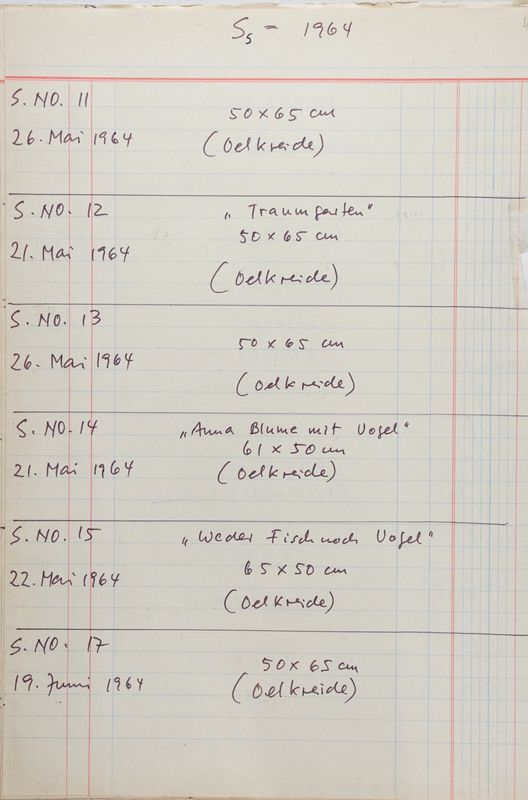 S5 = 1964
S. NO. 11
50 x 65 cm
26. Mai 1964
(Oelkreide)
S. NO. 12
„Traumgarten"
50 x 65 cm
21. Mai 1964
(Oelkreide)
S. NO. 13
50 x 65 cm
26. Mai 1964
(Oelkreide)
S. NO. 14
„Anna Blume mit Vogel"
61 x 50 cm
21. Mai 1964
(Oelkreide)
S. NO. 15
„Weder Fisch noch Vogel"
65 x 50 cm
22. Mai 1964
(Oelkreide)
S. NO. 17
50 x 65 cm
19. Juni 1964
(Oelkreide)